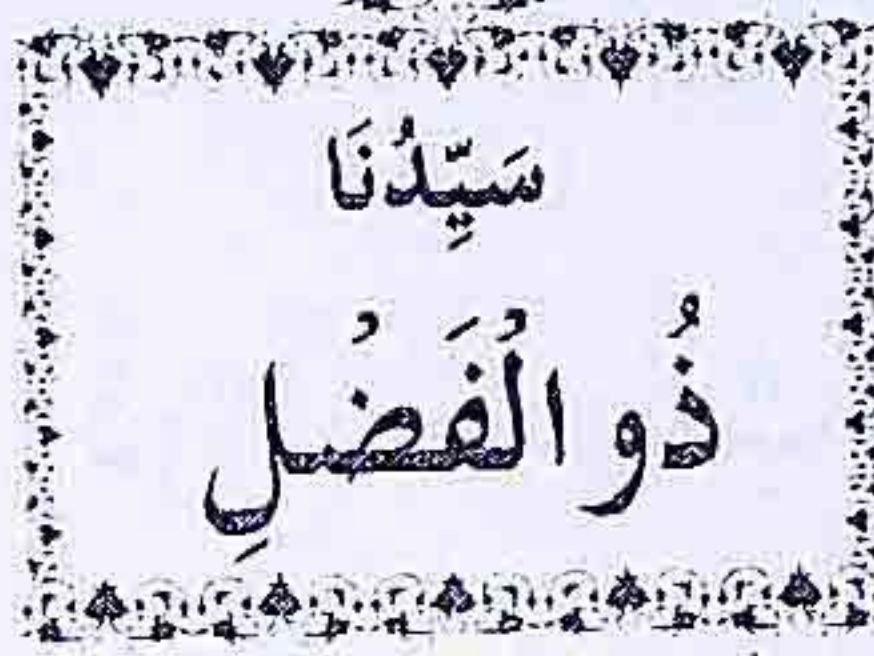 سَيِّدُنَا
ذُو الْفَضْلِ